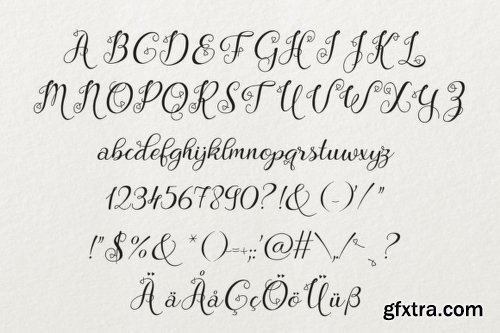 A B C D E F G H I J K L
M N O P Q R S T U V W X Y Z
abcdefghijklmnopqrstuvwxyz
1234567890?!&(-)'/"
!"$%&*()-=+;:'@\,/~,?
ÄäÅåÇçÖöÜüß
gfxtra.com